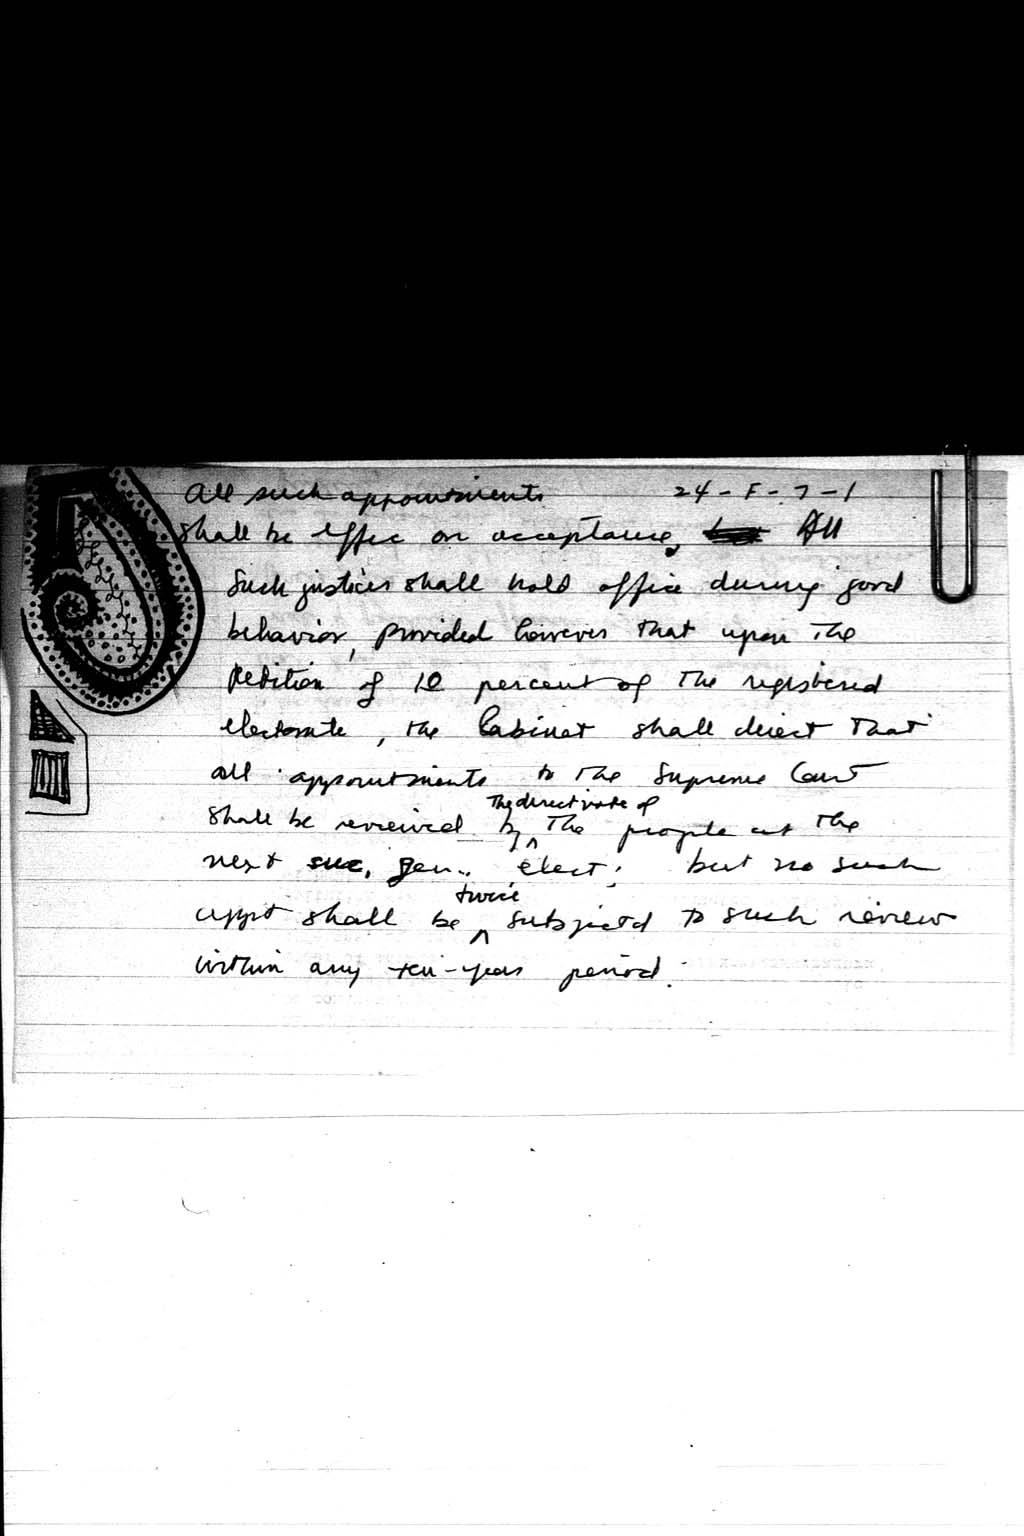 All such appointments 24-F-7-1
shall be effec on acceptance, All
Such justices shall hold office during good
behavior, provided however that upon the
petition of 10 percent of the registered
electorate, the Cabinet shall direct that
all appointments to the Supreme Court
the direct vote of
shall be reviewed by ^ the people at the
next suc. gen. elect; but no such
twice
appt shall be ^ subjectd to such review
within any ten-year period.